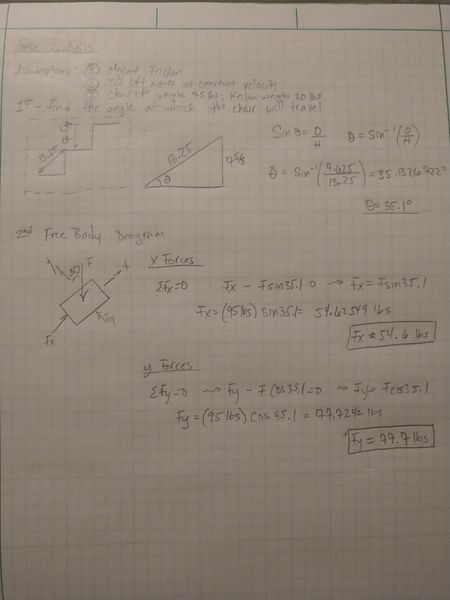 Force Analysis
Assumptions: ① Neglect Friction
② The lift moves at constant velocity
③ Chair lift weighs 75 lbs, weighs 20 lbs
1st - Find the angle at which the chair will travel
13.25
13.25
θ
Sin θ = O/H θ = Sin⁻¹(O/H)
θ = Sin⁻¹(7.625/13.25) = 35.1326722°
θ = 35.1°
2nd Free Body Diagram
F
Fx
Fy
X Forces
ΣFx=0 Fx - Fsin35.1=0 → Fx = Fsin35.1
Fx = (95 lbs) sin35.1 = 54.62549 lbs
Fx = 54.6 lbs
y Forces
ΣFy=0 → Fy - Fcos35.1=0 → Fy = Fcos35.1
Fy = (95 lbs) cos35.1 = 77.7242 lbs
Fy = 77.7 lbs